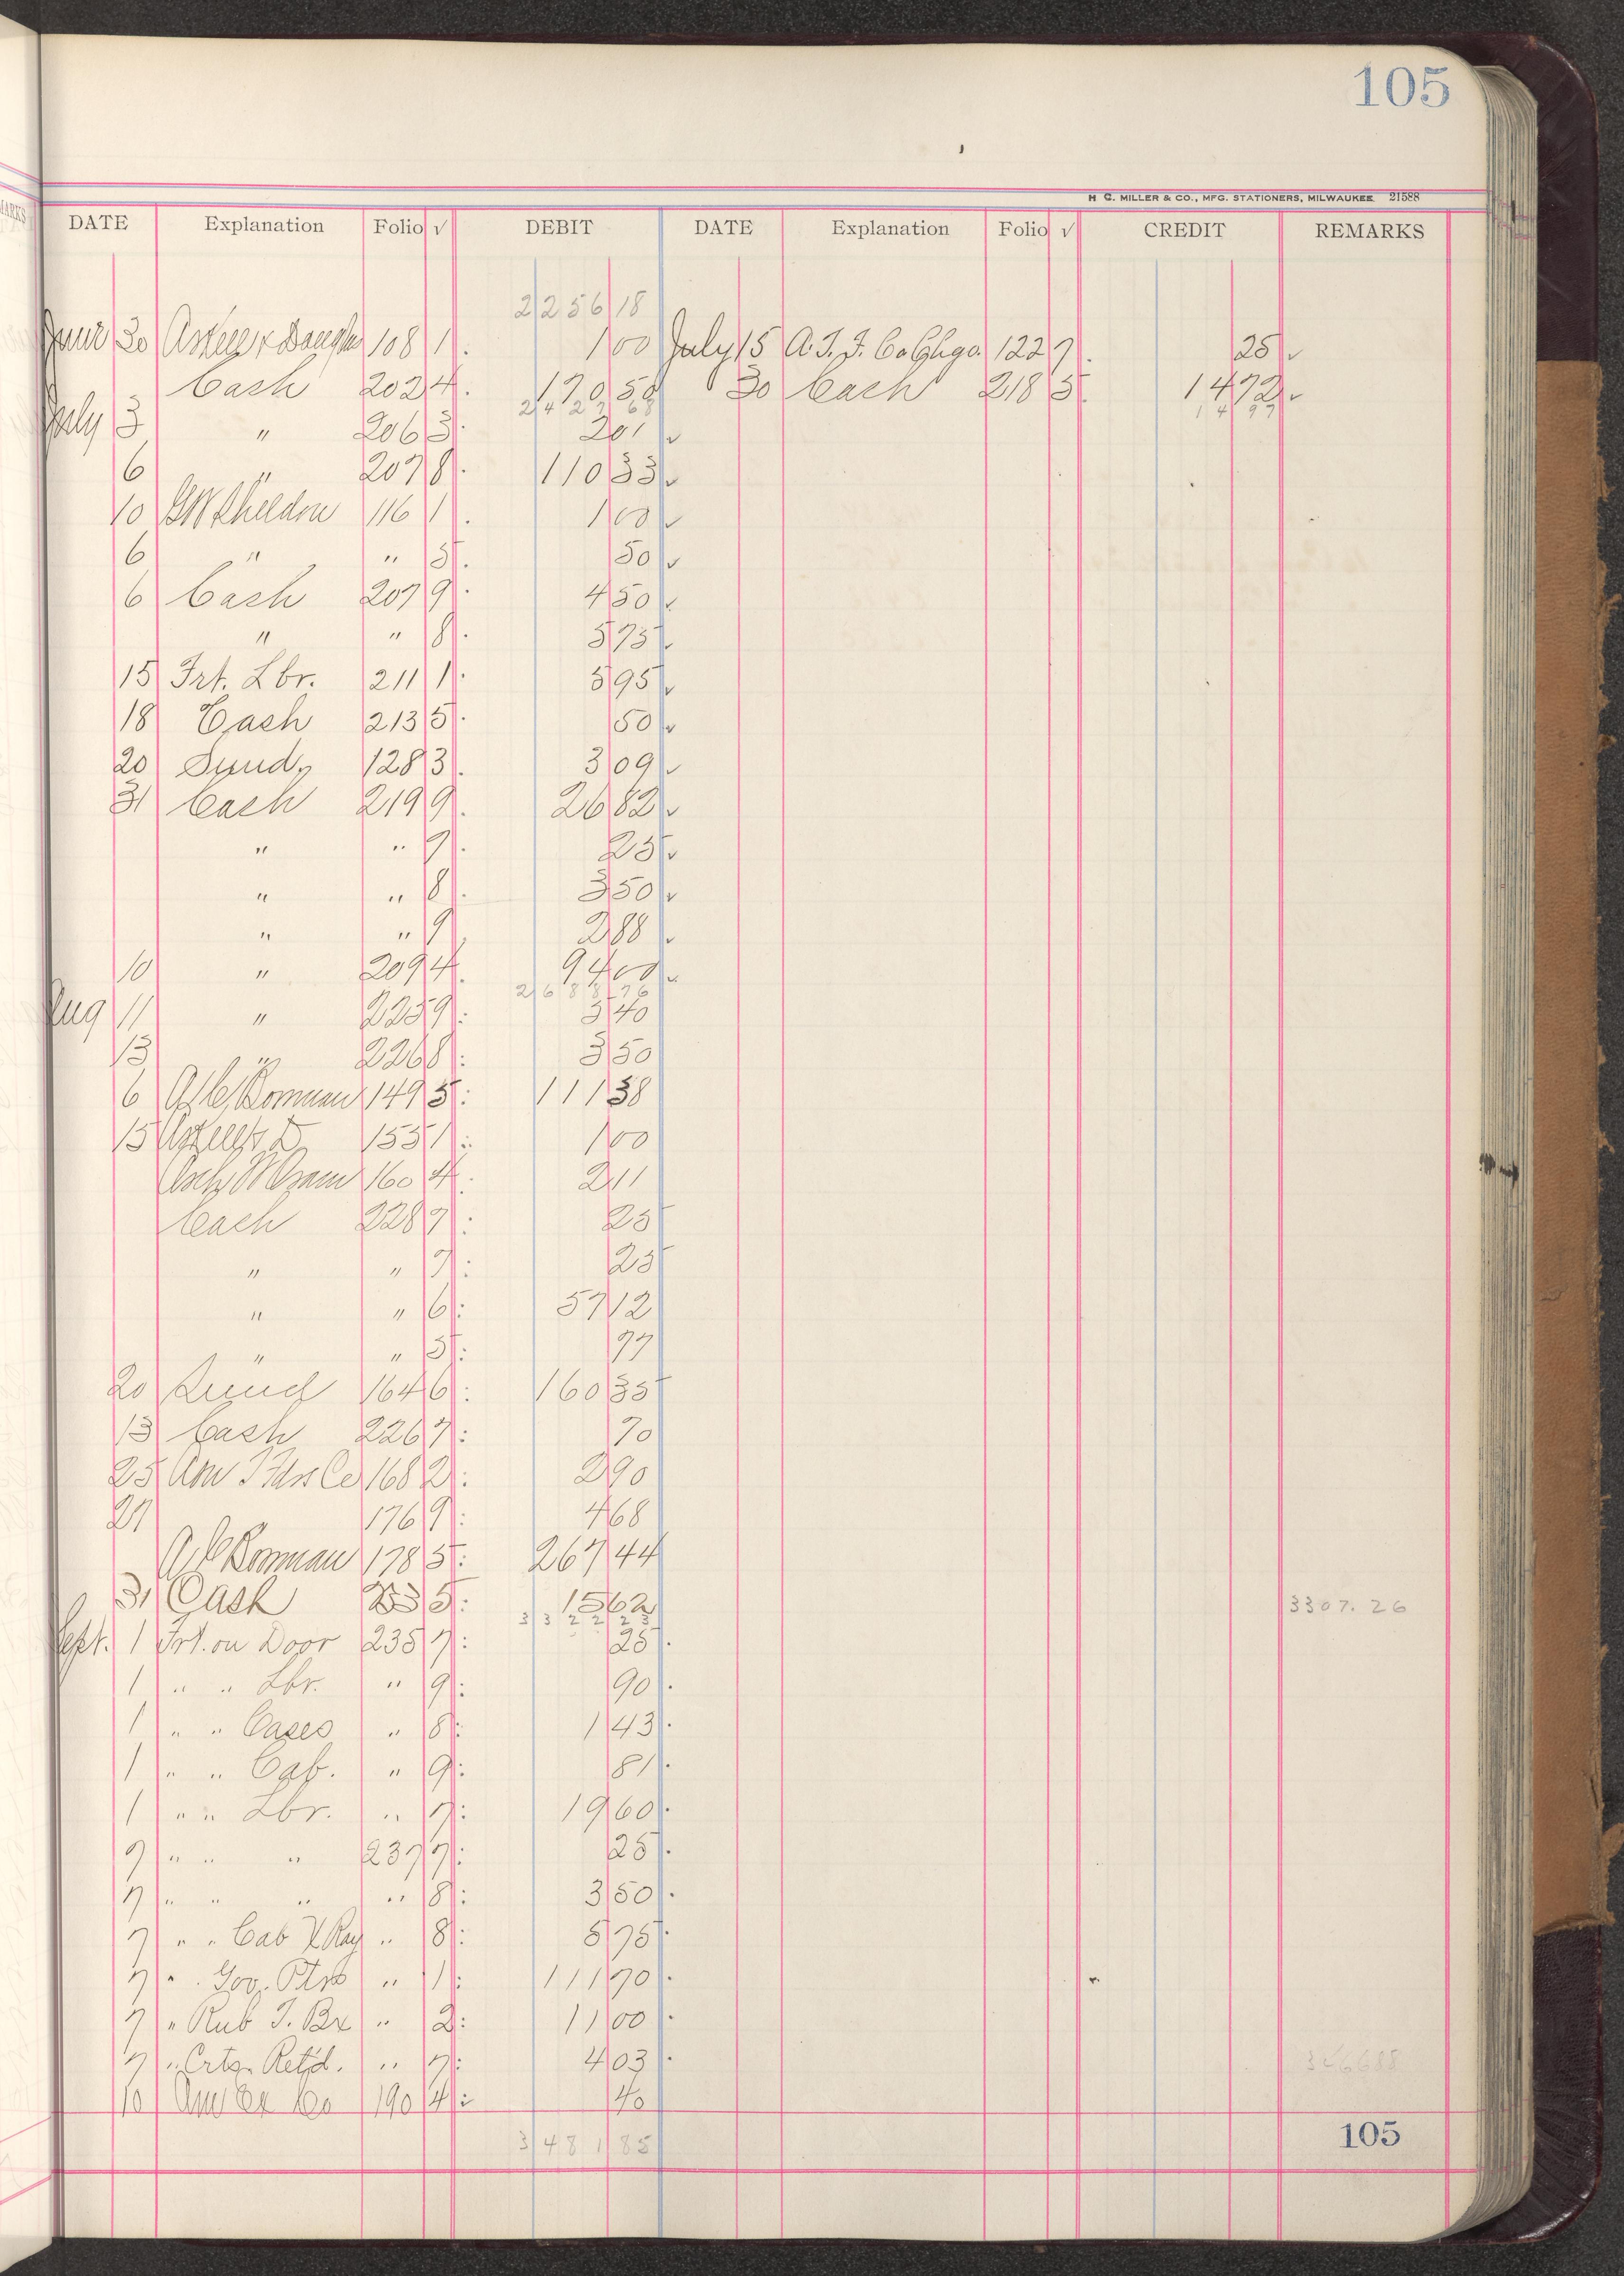 105
H C. MILLER & CO., MFG. STATIONERS, MILWAUKEE 21588
DATE Explanation Folio √ DEBIT DATE Explanation Folio √ CREDIT REMARKS
2256 18
June 30 108 1 1 00 July 15 A. T. F. Co Chgo. 122 7 25
Cash 202 4 170 50 30 Cash 218 5 14 72
2427 68 14 97
July 3 " 206 3 2 01
6 " 207 8 110 33
10 GW Sheldon 116 1 1 00
6 " " 5 50
6 Cash 207 9 4 50
" " 8 5 75
15 Frt. Lbr. 211 1 5 95
18 Cash 213 5 50
20 Sund. 128 3 3 09
31 Cash 219 9 26 82
" " 7 25
" " 8 3 50
" " 9 2 88
10 " 209 4 94 00
2688 76
Aug 11 " 225 9 5 40
13 " 226 8 3 50
6 149 5 111 38
15 155 1 1 00
160 4 2 11
Cash 228 7 25
" " 7 25
" " 6 57 12
" " 5 77
20 Sund 164 6 160 35
13 Cash 226 7 70
25 Am 168 2 2 90
27 176 9 4 68
178 5 267 44
31 Cash 5 15 62
3322 23 3307.26
Sept. 1 Frt. on Door 235 7 25
1 " " Lbr. " 9 90
1 " " Cases " 8 1 43
1 " " Cab. " 9 81
1 " " Lbr. " 7 19 60
7 " " " 237 7 25
7 " " " " 8 3 50
7 " " Cab X Ray " 8 5 75
7 " " Gov. " 1 111 70
7 " Rub T. Bx " 2 11 00
7 " Crtg. Ret'd. " 7 4 03
10 Am Ex Co 190 4 40
3481 85
105